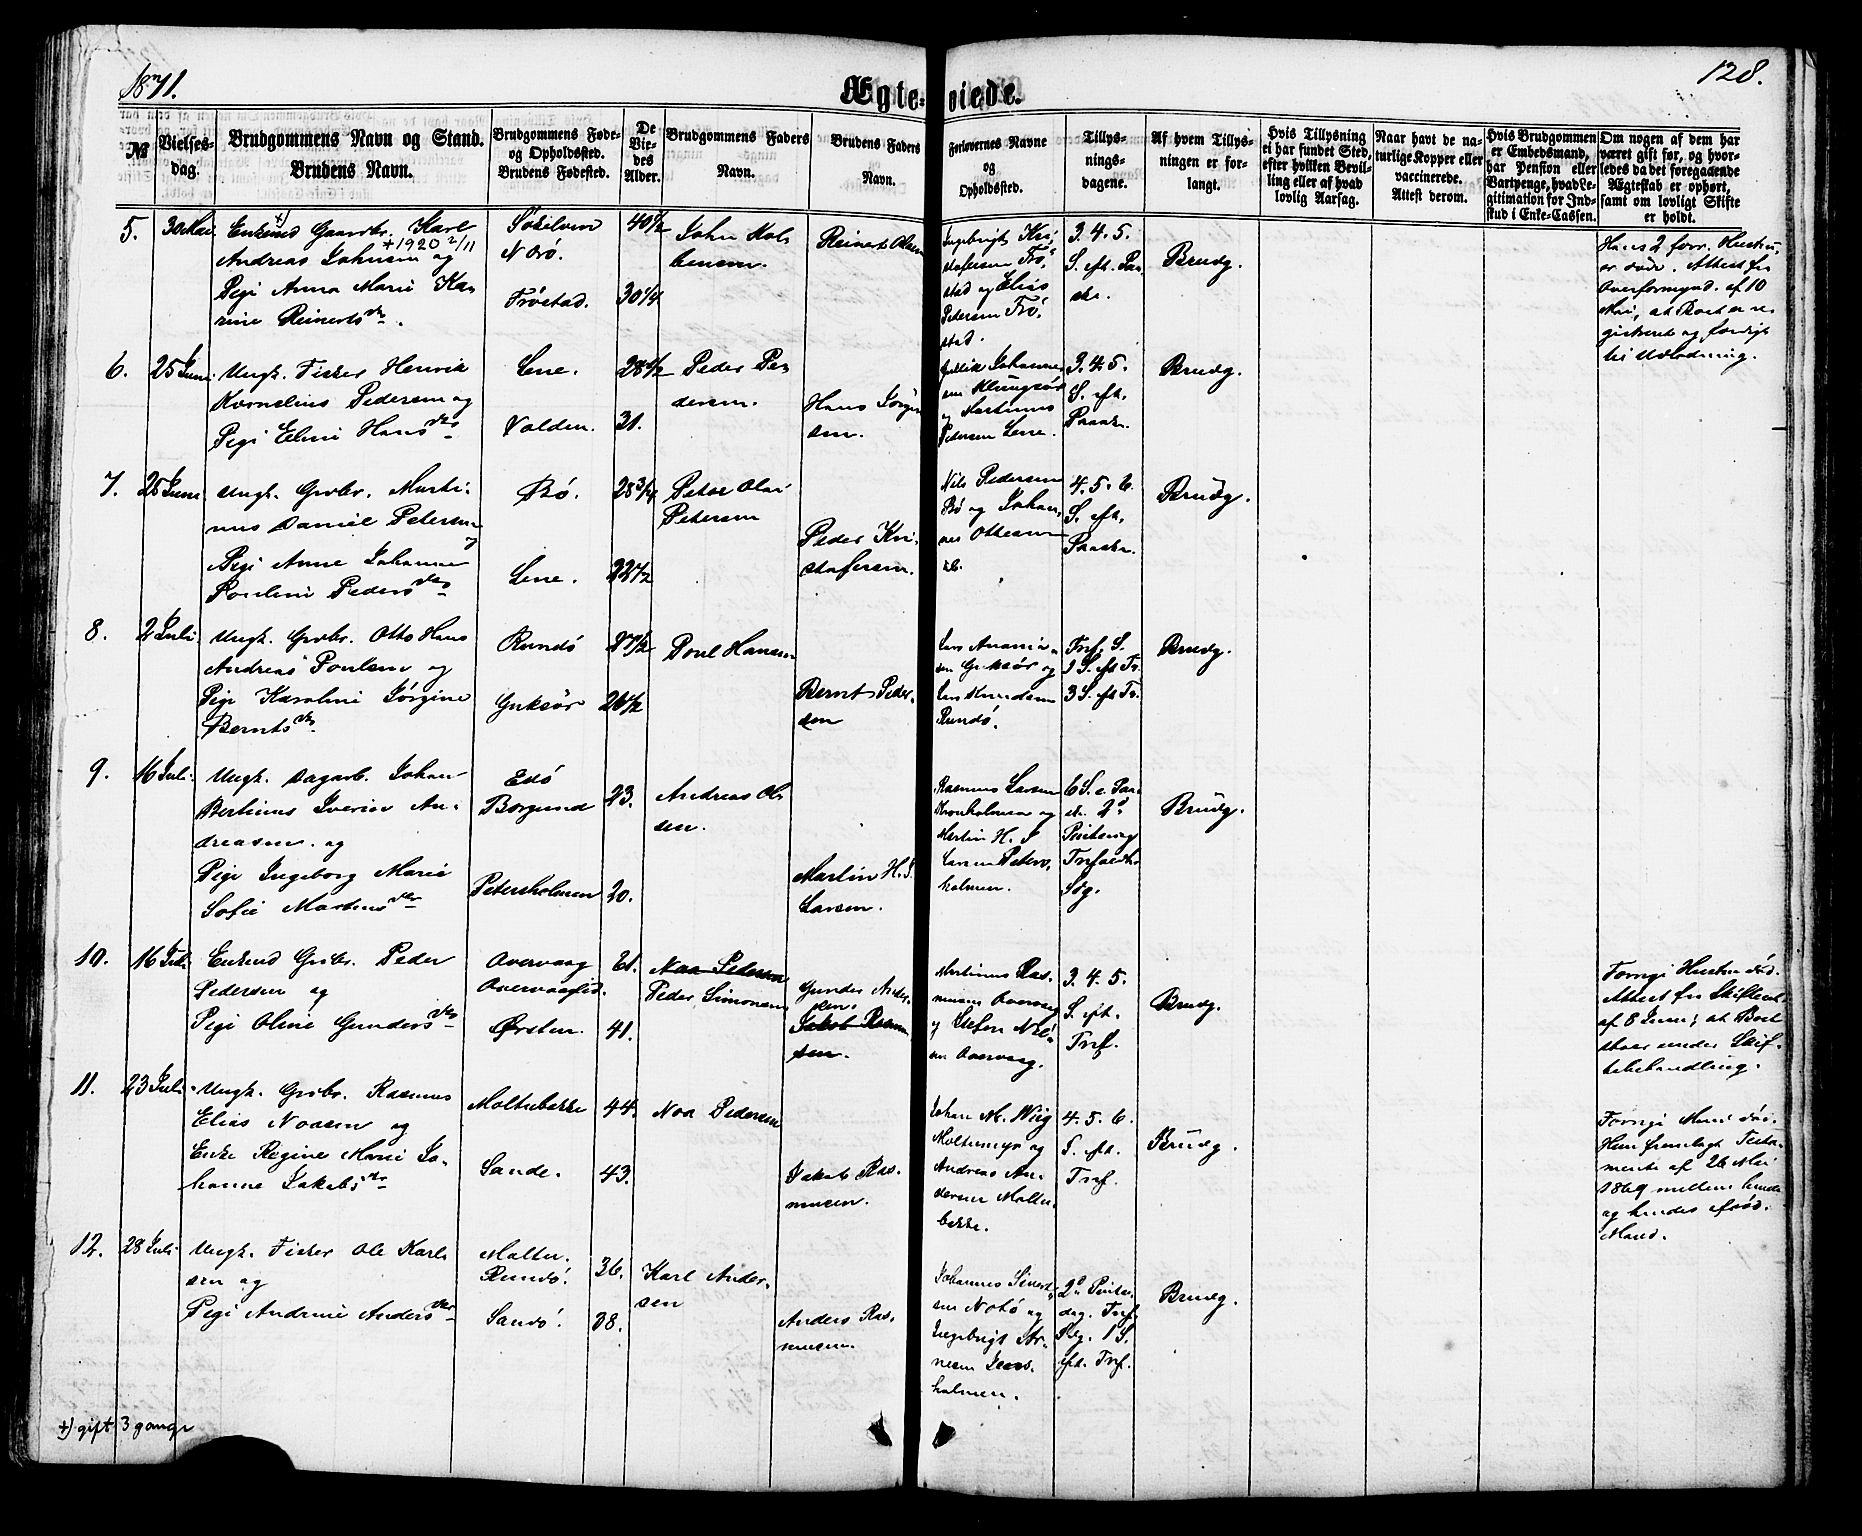 1871.
128.
Ægteviede.
№
Vielses-
dag.
Brudgommens Navn og Stand.
Brudens Navn.
Brudgommens Føde-
og Opholdssted.
Brudens Fødested.
De
Vie-
des
Alder.
Brudgommens Faders
Navn.
Brudens Faders
Navn.
Forlovernes Navne
og
Opholdssted.
Tillys-
nings-
dagene.
Af hvem Tillys-
ningen er for-
langt.
Hvis Tillysning
ei har fundet Sted,
efter hvilken Bevil-
ling eller af hvad
lovlig Aarsag.
Naar havt de na-
turlige Kopper eller
vaccinerede.
Attest derom.
Hvis Brudgommen
er Embedsmand,
har Pension eller
Vartpenge, hvad Le-
gitimation for Ind-
skud i Enke-Cassen.
Om nogen af dem har
været gift før, og hvor-
ledes da det foregaaende
Ægteskab er ophørt,
samt om lovligt Skifte
er holdt.
5.
30 Mai
Enkemd Gaardbr. Karl
+1920 2/11
Andreas Johnsen og
Pegi Anna Marie Ka-
rine Reinertsdtr.
NØrø.
Frøstad.
40 1/2
30 1/4
John Kol-
bensen.
Reinert Olsen
Ingebrigt Kri-
stofersen Frø-
stad og Elias
Pedersen Frø-
stad.
3. 4. 5.
S. eft. Paa-
ske.
Brudg.
Hans 2 forr. Hustru
er døde. Attest fra
Overformynd. af 10
Mai, at Boet er re-
gistreret og færdigt
til Udlodning.
6.
25 Juni
Ungk. Fisker Henrik
Kornelius Pedersen og
Pegi Eline Hansdtr
Lene.
Volden.
28 1/2
31.
Peder Pe-
dersen.
Hans Jørgen-
sen.
Johannes-
sen Klungsør
og Martinus
Pedersen Lene.
3. 4. 5.
S. eft.
Paaske.
Brudg.
7.
25 Juni
Ungk. Grdbr. Marti-
nus Daniel Petersen
Pegi Anne Johanne
Pouline Pedersdtr
Bø.
Lene.
28 3/4
22 1/2
Peter Olai
Petersen
Peder Kri-
stofersen.
Nils Pedersen
Bø og Johan-
nes Ottesen
4. 5. 6.
S. eft.
Paaske.
Brudg.
8.
2 Juli.
Ungk. Grdbr. Otto Hans
Andreas Poulsen og
Pegi Karoline Jørgine
Berntsdtr.
Rundø
Gurksør
27 1/2
26 1/2
Poul Hansen
Bernt Peder-
sen
Lars Anania-
sen Gurksør og
Lars Knudsen
Rundø.
Tref. S.
1 S. eft Tr.
3 S. eft Tr.
Brudg.
9.
16 Juli.
Ungk. Dagarb. Johan
Bertinus Iverin An-
dreasen. og
Pegi Ingeborg Marie
Sofie Martinsdtr
Edø
Borgund
Petersholmen
23.
20.
Andreas Ol-
sen.
Martin H. S.
Larsen.
Rasmus Larsen
Kvernholmen og
Martin H. S
Larsen Peters-
holmen.
6 S. e Paa-
ske. 2d
Pintsedag
Trefoldh.
Sdg.
Brudg.
10.
16 Juli
Enkemd Grdbr. Peder
Pedersen og
Pegi Oline Gundersdtr
Overvaag
Overvaaglid.
Ørsten.
61.
41.
Noa Pedersen
Peder Simonsen
Gunder Ander-
sen.
Jakob Rasmu-
sen.
Martinus Ras-
musen Overvaag
og Stefen Nil-
sen Overvaag.
3. 4. 5.
S. eft.
Tref.
Brudg.
Forrige Hustru død.
Attest fra Skifteret
af 8 Juni, at Boet
staar under Skif-
tebehandling.
11.
23 Juli
Ungk. Grdbr. Rasmus
Elias Noasen og
Enke Regine Marie Jo-
hanne Jakobsdtr
Moltubakke
Sande.
44.
43.
Noa Pedersen
Jakob Ras-
musen.
Johan M. Wiig
Moltumyr og
Andreas An-
dersen Moltu-
bakke.
4. 5. 6.
S. eft.
Tref.
Brudg.
Forrige Mand død.
Hun fremlagt Testa-
mente af 26 Mai
1869 mellem hende
og hendes afdød.
Mand.
12.
28 Juli
Ungk. Fisker Ole Karl-
sen og
Pegi Andrine Andersdtr
Moltu.
Rundø.
Sandø.
36.
38.
Karl Ander-
sen
Anders Ras-
musen.
Johannes Sivert-
sen Notø og
Ingebrigt Ar-
nesen Jens-
holmen.
2d Pintse-
dag. Tref.
Sdg. 1 S.
eft. Tref.
Brudg.
+) gift 3 gange